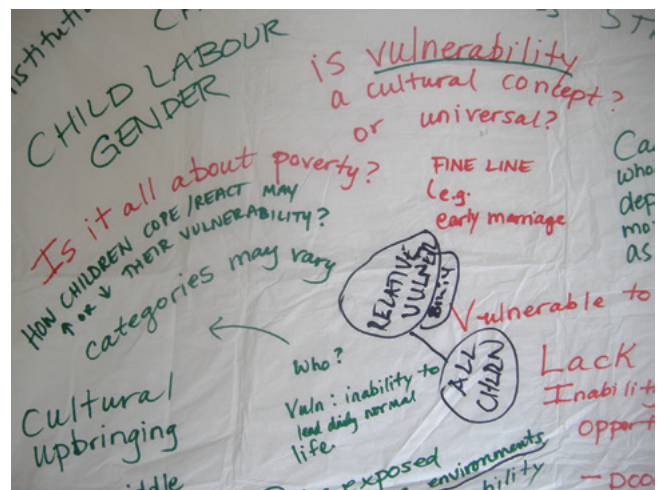 CHILD LABOUR
GENDER
is vulnerability
a cultural concept?
or universal?
Is it all about poverty?
FINE LINE
(e.g.
early marriage
HOW CHILDREN COPE/REACT MAY
↑ OR ↓ THEIR VULNERABILITY?
categories may vary
RELATIVE
VULNER
Vulnerable to
ALL
CHLDN
Who?
Vuln: inability to
lead daily normal
life.
Lack
Cultural
upbringing
exposed
environments
as